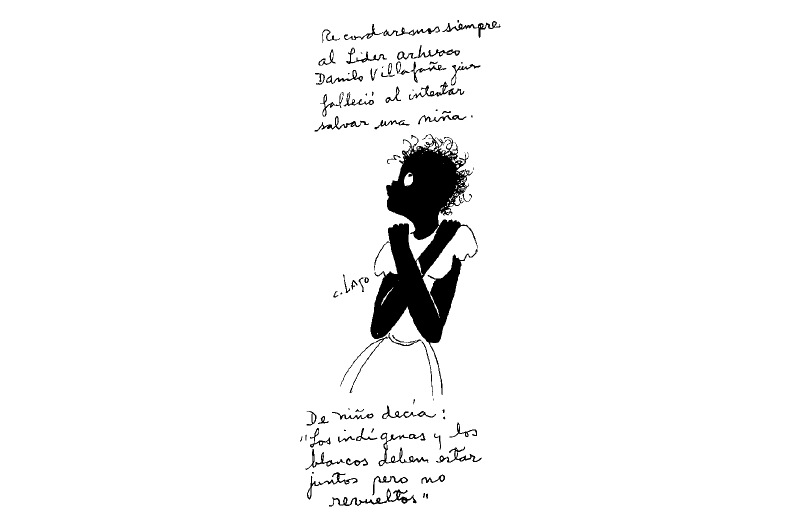 Recordaremos siempre
al Lider arhuaco
Danilo Villafañe quien
falleció al intentar
salvar una niña.
c. LAGO
De niño decía:
"Los indígenas y los
blancos deben estar
juntos pero no
revueltos"